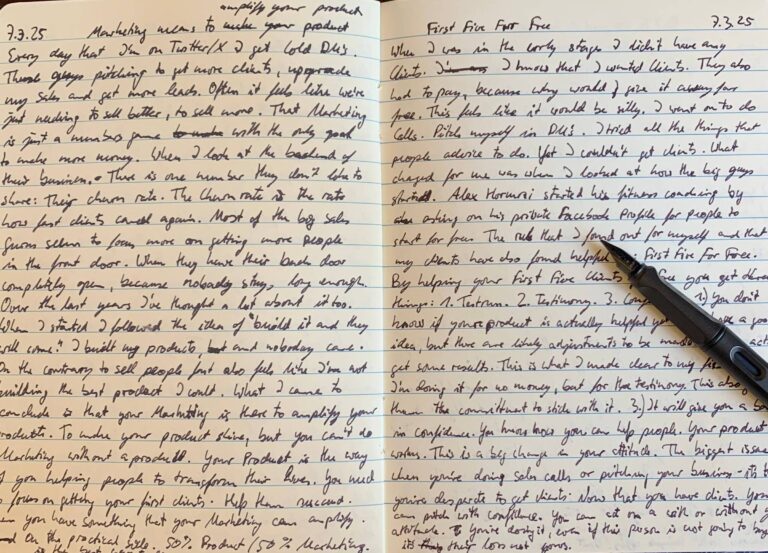 amplify your product
7.3.25 Marketing means to make your product
Every day that I'm on Twitter/X I get cold DM's.
These guys pitching to get more clients, upgrade
my sales and get more leads. Often it feels like we're
just needing to sell better, to sell more. That Marketing
is just a numbers game with the only goal
to make more money. When I look at the backend of
their business. There is one number they don't like to
share: Their churn rate. The Churn rate is the rate
how fast clients cancel again. Most of the big sales
gurus seem to focus more on getting more people
in the front door. When they have their back door
completely open, because nobody stays long enough.
Over the last years I've thought a lot about it too.
When I started I followed the idea of "build it and they
will come." I built my products, but and nobody came.
On the contrary to sell people just also feels like I'm not
building the best product I could. What I came to
conclude is that your Marketing is there to amplify your
products. To make your product shine, but you can't do
Marketing without a product. Your Product is the way
of you helping people to transform their lives. You need
to focus on getting your first clients. Help them succeed.
you have something that your Marketing can amplify.
And on the practical side. 50% Product / 50% Marketing.
is the best
First Five For Free 7.3.25
When I was in the early stages I didn't have any
Clients. I know that I wanted Clients. They also
had to pay, because why would I give it away for
free. This feels like it would be silly. I went on to do
Calls. Pitch myself in DM's. I tried all the things that
people advice to do. Yet I couldn't get clients. What
changed for me was when I looked at how the big guys
started. Alex Hormozi started his fitness coaching by
asking on his private Facebook Profile for people to
start for free. The rule that I found out for myself and that
my clients have also found helpful First Five For Free.
By helping your First Five Clients free you get three
things: 1. Testrun. 2. Testimony. 3. 1.) You don't
know if your product is actually helpful yet have a good
idea, but there are likely adjustments to be made
get some results. This is what I made clear to my
I'm doing it for no money, but for the testimony. This also
them the commitment to stick with it. 3.) It will give you a
in confidence. You know now you can help people. Your product
works. This is a big change in your attitude. The biggest issue
when you're doing sales calls or pitching your business - it's
you're desperate to get clients. Now that you have clients. You
can pitch with confidence. You can at on a call or without
attitude. If you're doing it, even if this person is not going to buy
it's their loss not yours.